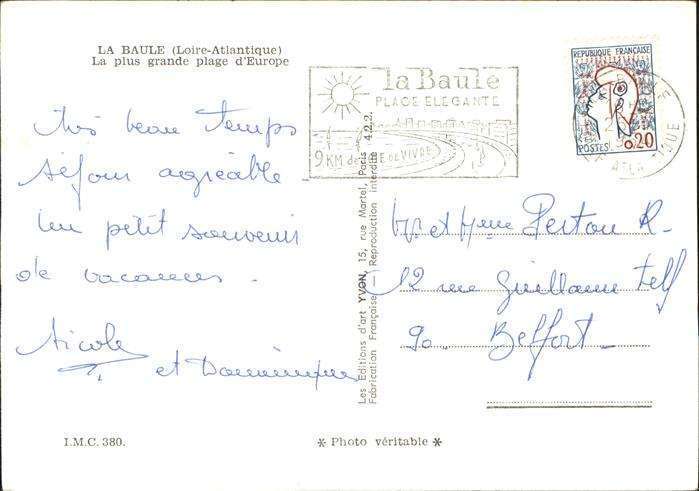 LA BAULE (Loire-Atlantique)
La plus grande plage d'Europe
très beau temps
séjour agréable -
Un petit souvenir
de vacances.
Nicole
et Dominique
I.M.C. 380.
Les Editions d'art YVON, 15, rue Martel, Paris 4.2.2.
Fabrication Française — Reproduction interdite
la Baule
PLAGE ELEGANTE
9 KM de DE VIVRE
REPUBLIQUE FRANÇAISE
POSTES 0,20
Mr et Mme Perton R-
12 rue Guillaume Tell
90 - Belfort -
* Photo véritable *